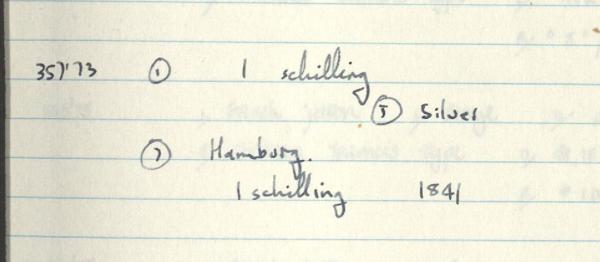 357'73 ① 1 schilling
⑤ Silver
⑦ Hamburg.
1 schilling 1841